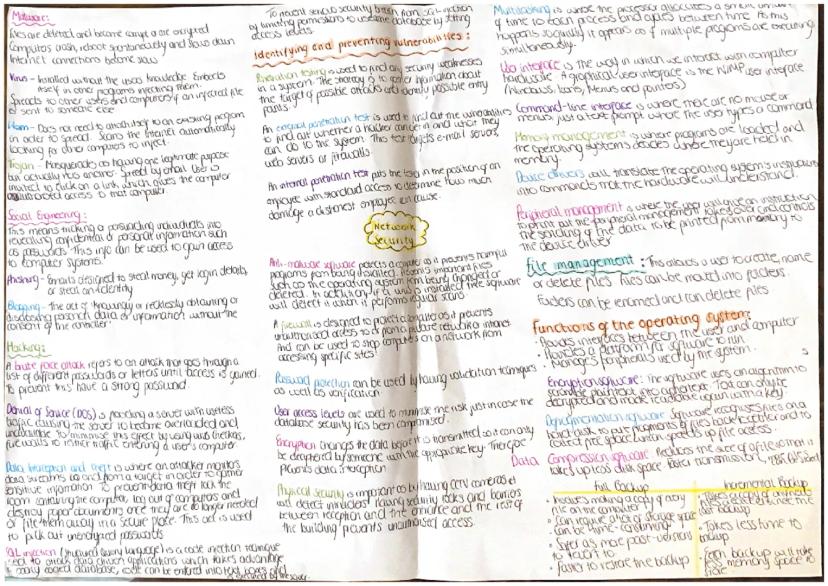 Malware:
Files are deleted and become corrupt or are encrypted
Computers crash, reboot spontaneously and slows down
Internet connections become slow
Virus - Installed without the users knowledge. Embeds
itself in other programs infecting them.
Spreads to other users and computers if an infected file
is sent to someone else
Worm - Does not need to attach itself to an existing program
in order to spread. Scans the Internet automatically
looking for other computers to infect.
Trojan - Masquerades as having one legitimate purpose
but actually has another. Spread by email. User is
invited to click on a link which gives the computer
access to that computer
Social Engineering:
This means tricking or persuading individuals into
revealing confidential or personal information such
as passwords. This info can be used to gain access
to computer systems.
Phishing - Emails designed to steal money, get login details,
or steal an identity
Blagging - The act of knowingly or recklessly obtaining or
disclosing personal data or information without the
consent of the controller
Hacking:
A brute force attack refers to an attack that goes through a
list of different passwords or letters until access is gained.
To prevent this, have a strong password.
Denial of Service (DOS) is flooding a server with useless
traffic causing the server to become overloaded and
unavailable. To minimise this effect by using
firewalls to filter traffic entering a user's computer
Data interception and theft is where an attacker monitors
data streams to and from a target in order to gather
sensitive information. To prevent data theft lock the
room containing the computer, log out of computers and
destroy paper documents once they are no longer needed
or file them away in a secure place. This act is used
to pick out unencrypted passwords
SQL injection (structured query language) is a code injection technique
used to attack data driven applications which takes advantage
code can be entered into text boxes and
is executed by the server.
To prevent serious security breach from SQL injection
by limiting permissions to use the database by setting
access levels.
Identifying and preventing vulnerabilities:
Penetration testing is used to find any security weaknesses
in a system. The strategy is to gather information about
the target of possible attacks and identify possible entry
points.
An external penetration test is used to find out the vulnerabilities
to find out whether a hacker can get in and what they
can do to the system. This test targets e-mail servers,
web servers or firewalls.
An internal penetration test puts the tester in the position of an
employee with standard access to determine how much
damage a dishonest employee can cause.
Network
Security
Anti-malware software protects a computer as it prevents harmful
programs from being installed. It prevents important files
such as the operating system from being changed or
deleted. If a virus is installed the software
will detect it when it performs regular scans
A firewall is designed to protect a computer as it prevents
unauthorised access to or from a private network or intranet
and can be used to stop computers on a network from
accessing specific sites
Password protection can be used by having validation techniques
as well as verification.
User access levels are used to minimise the risk just in case the
database security has been compromised.
Encryption changes the data before it is transmitted so it can only
be deciphered by someone with the appropriate key. Therefore
prevents data interception
Physical security is important as by having CCTV cameras it
will detect intruders. Having security locks and barriers
between reception and the entrance and the rest of
the building prevents unauthorised access
Multitasking is where the processor allocates a small amount
of time to each process and cycles between them. As this
happens so quickly it appears as if multiple programs are executing
simultaneously.
User interface is the way in which we interact with computer
hardware. A graphical user interface is the WIMP user interface
(Windows, Icons, Menus and pointers)
Command-line interface is where there are no mouse or
menus, just a text prompt where the user types a command
Memory management is where programs are loaded and
the operating system decides where they are held in
memory.
Device drivers will translate the operating system's instructions
into commands that the hardware will understand.
Peripheral management is where the user will give an instruction
to print but the peripheral management takes over and controls
the sending of the data to be printed from memory to
the device driver
File management: This allows a user to create, name
or delete files. Files can be moved into folders.
Folders can be renamed and can delete files
Functions of the operating system:
• Provides interfaces between the user and computer
• Provides a platform for software to run
• Manages peripherals used by the system.
Encryption software: The software uses an algorithm to
scramble plain text into cipher text. That can only be
decrypted and made readable again with a key.
Defragmentation software. Software recognises files on a
hard disk to put fragments of files back together and to
collect free space which speeds up file access
Data Compression software: Reduces the size of a file so that it
takes up less disk space. Faster transmission.
Full Backup
• Involves making a copy of every
file on the computer
• Can require a lot of storage space
• Can be time-consuming
• Safer as more past versions
to revert to
• Faster to restore the backup
Incremental Backup
• Takes a copy of
since the
last backup
• Takes less time to
backup
• Each backup will take
less memory space to